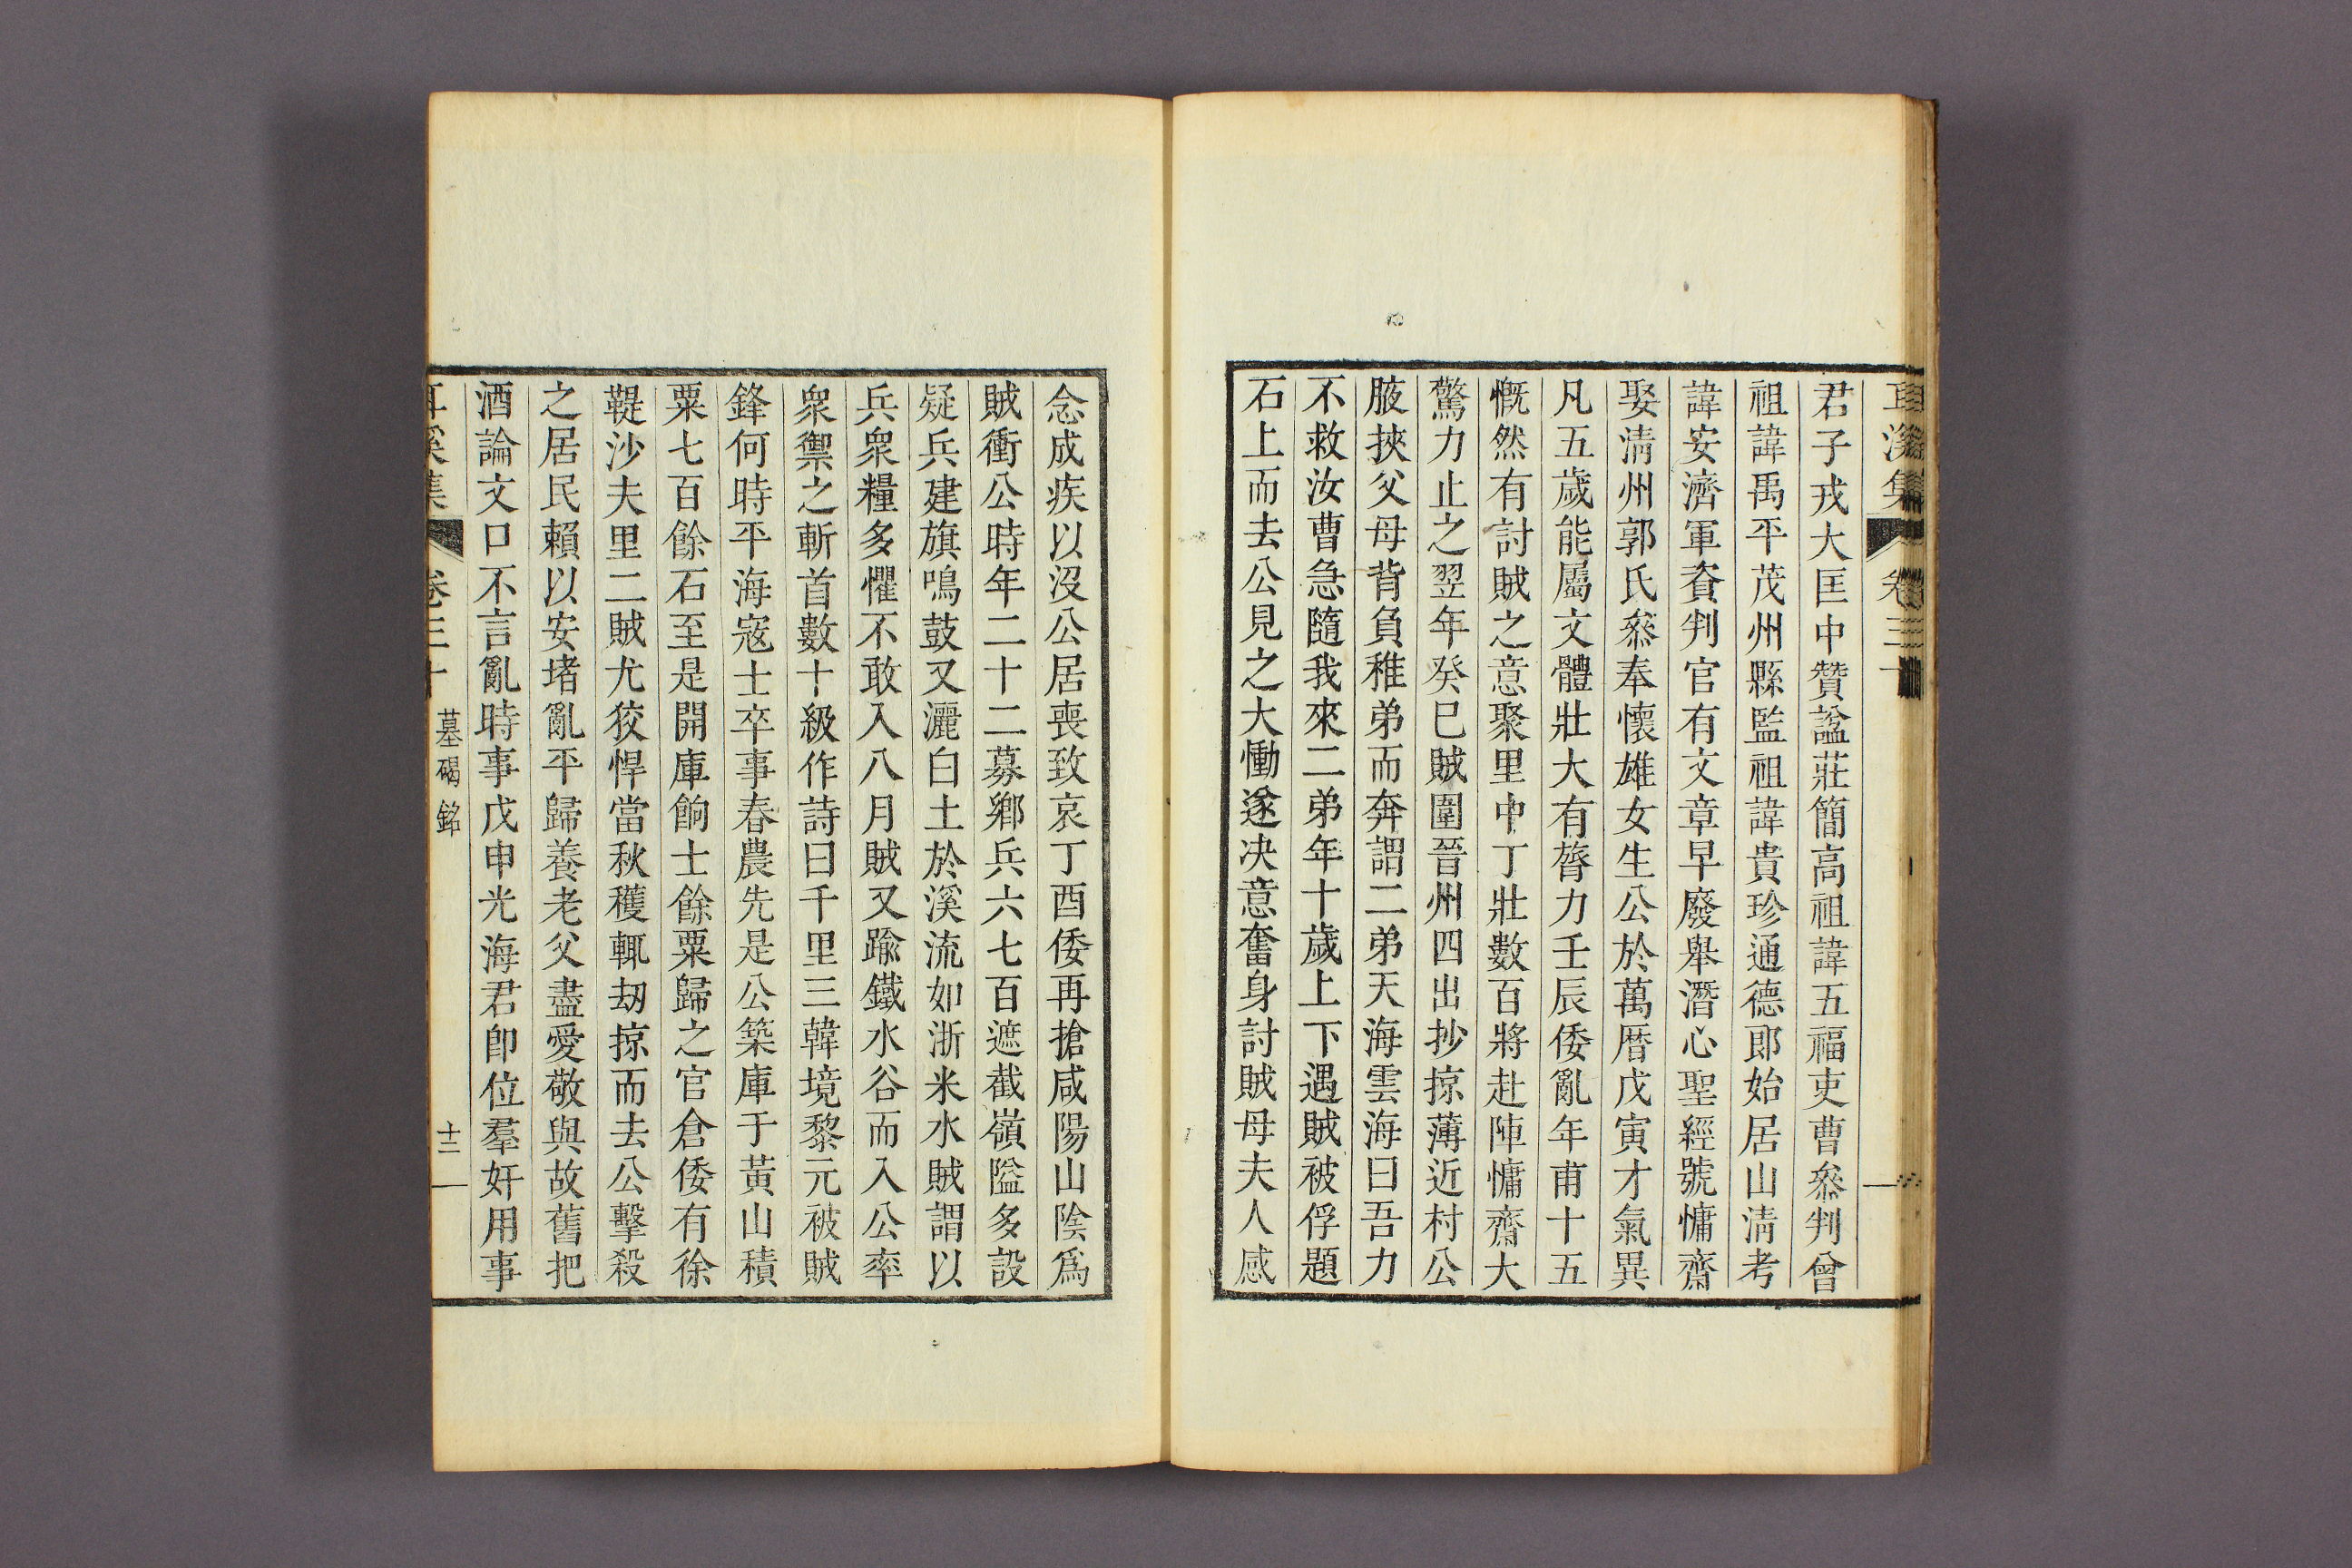 耳溪集 卷三十
君子戎大匡中贊諡莊簡高祖諱五福吏曹叅判曾
祖諱禹平茂州縣監祖諱貴珍通德郎始居山淸考
諱安濟軍資判官有文章早廢舉潛心聖經號慵齋
娶淸州郭氏叅奉懷雄女生公於萬曆戊寅才氣異
凡五歲能屬文體壯大有膂力壬辰倭亂年甫十五
慨然有討賊之意聚里中丁壯數百將赴陣慵齋大
驚力止之翌年癸巳賊圍晉州四出抄掠薄近村公
腋挾父母背負稚弟而奔謂二弟天海雲海曰吾力
不救汝曹急隨我來二弟年十歲上下遇賊被俘題
石上而去公見之大慟遂决意奮身討賊母夫人感
念成疾以沒公居喪致哀丁酉倭再搶咸陽山陰爲
賊衝公時年二十二募鄕兵六七百遮截嶺隘多設
疑兵建旗鳴鼓又灑白土於溪流如浙米水賊謂以
兵衆糧多懼不敢入八月賊又踰鐵水谷而入公率
衆禦之斬首數十級作詩曰千里三韓境黎元被賊
鋒何時平海寇士卒事春農先是公築庫于黃山積
粟七百餘石至是開庫餉士餘粟歸之官倉倭有徐
鞮沙夫里二賊尤狡悍當秋穫輒刼掠而去公擊殺
之居民賴以安堵亂平歸養老父盡愛敬與故舊把
酒論文口不言亂時事戊申光海君卽位羣奸用事
耳溪集 卷三十 墓碣銘 十二